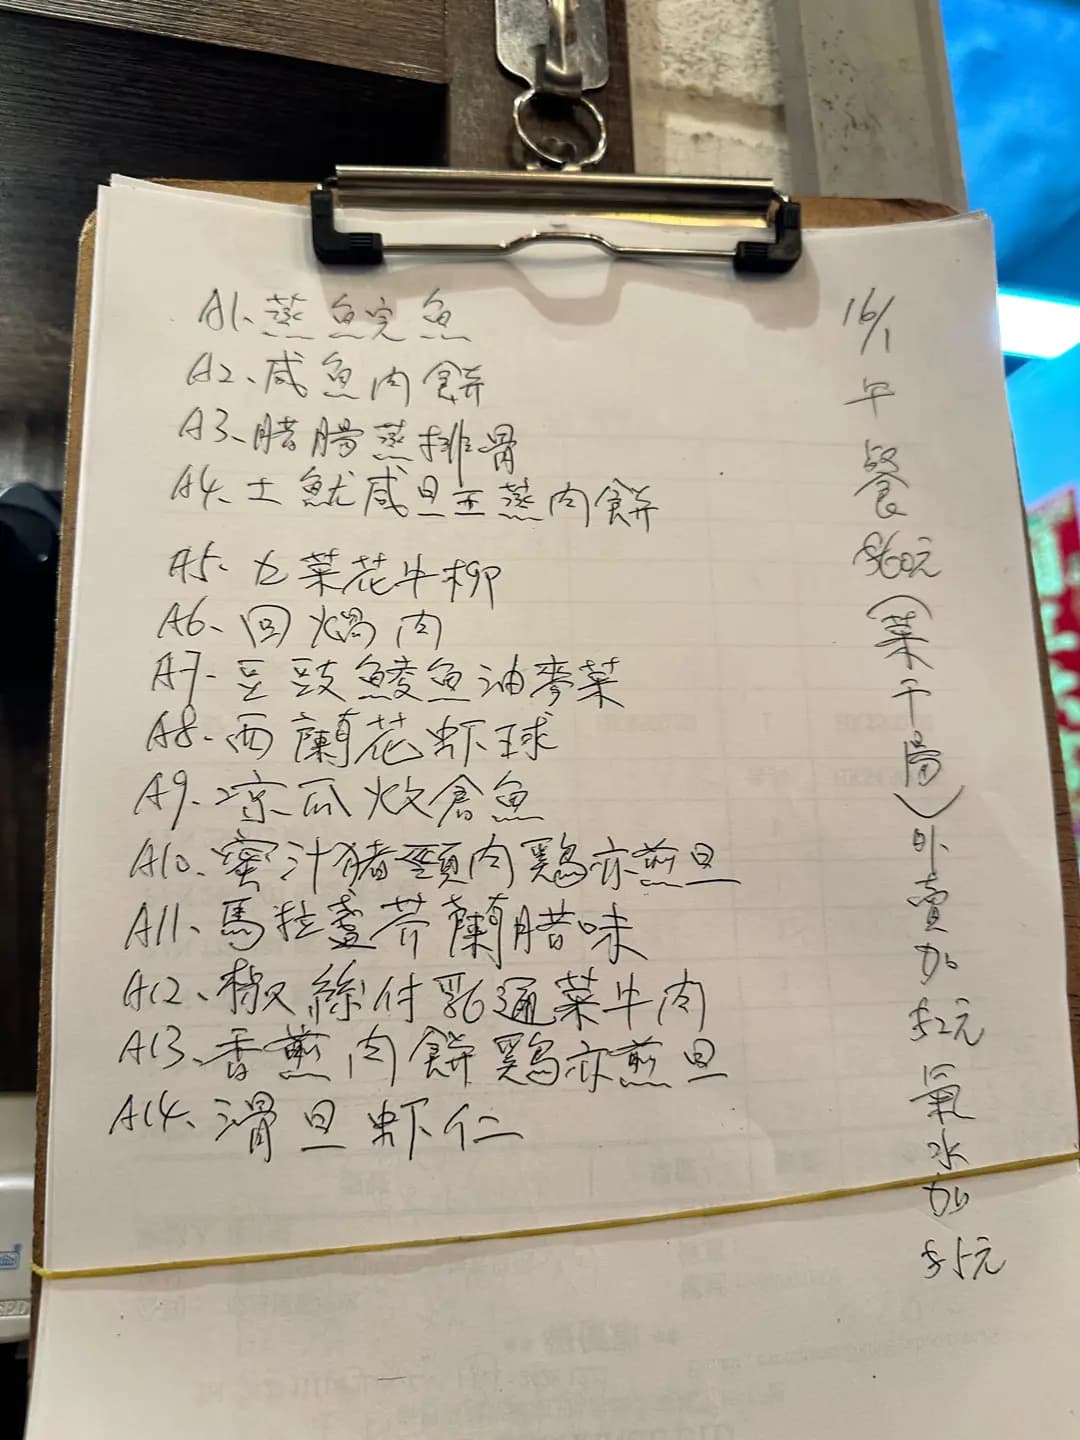 A1、蒸鯇魚
A2、咸魚肉餅
A3、腊腸蒸排骨
A4、土魷咸旦王蒸肉餅
A5、菜花牛柳
A6、回煱肉
A7、豆豉鯪魚油麥菜
A8、西蘭花虾球
A9、凉瓜炆倉魚
A10、蜜汁猪頸肉鷄亦煎旦
A11、馬拉盞芥蘭腊味
A12、椒絲付乳通菜牛肉
A13、香煎肉餅鷄亦煎旦
A14、滑旦虾仁
16/1午餐$60元(菜干湯)外賣加$2元氣水加$5元